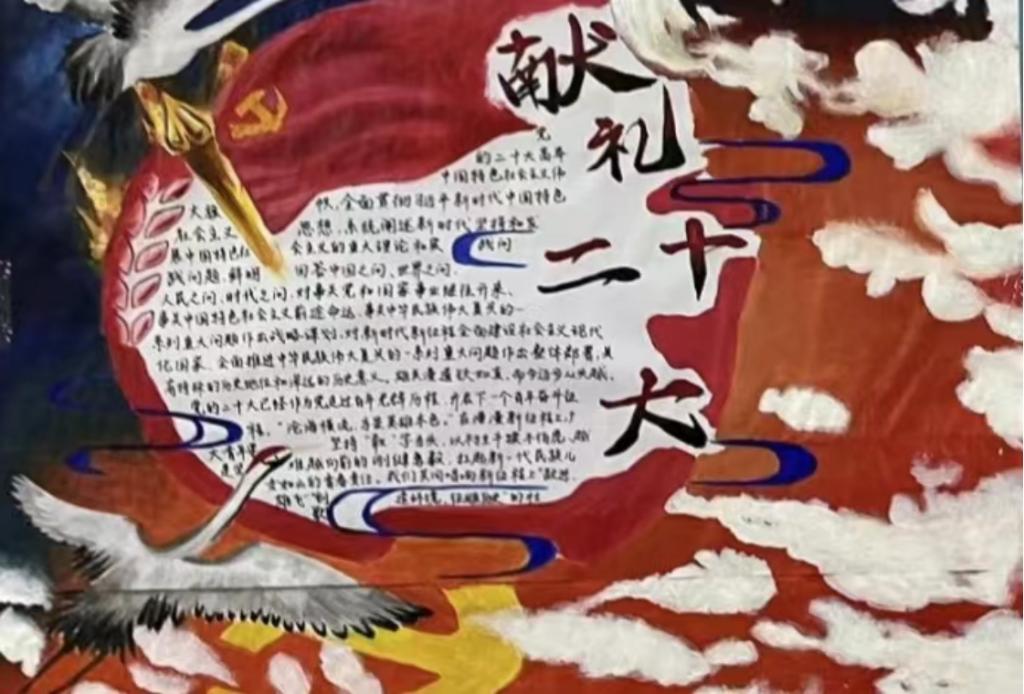 献礼
二十
大
党
的二十大高举
中国特色社会主义伟
大旗 帜,全面贯彻习近平新时代中国特色
社会主义 思想,系统阐述新时代坚持和发
展中国特色社 会主义的重大理论和实 践问
践问题,鲜明 回答中国之问、世界之问、
人民之问、时代之问,对事关党和国家事业继往开来、
事关中国特色社会主义前途命运、事关中华民族伟大复兴的一
系列重大问题作出战略谋划,对新时代新征程全面建设社会主义现代
化国家、全面推进中华民族伟大复兴的一系列重大问题作出整体部署,具
有特殊的历史地位和深远的历史意义。雄关漫道真如铁,而今迈步从头越。
党的二十大已经作为党走过百年光辉历程、开启下一个百年奋斗征
程。“沧海横流,方显英雄本色。”在漫漫新征程上,
坚持“敢”字当头,以
难越向前的刚健勇毅,扛起新一代民族儿
的青春责任。我们共同唱响新征程上“
雄飞”
歌